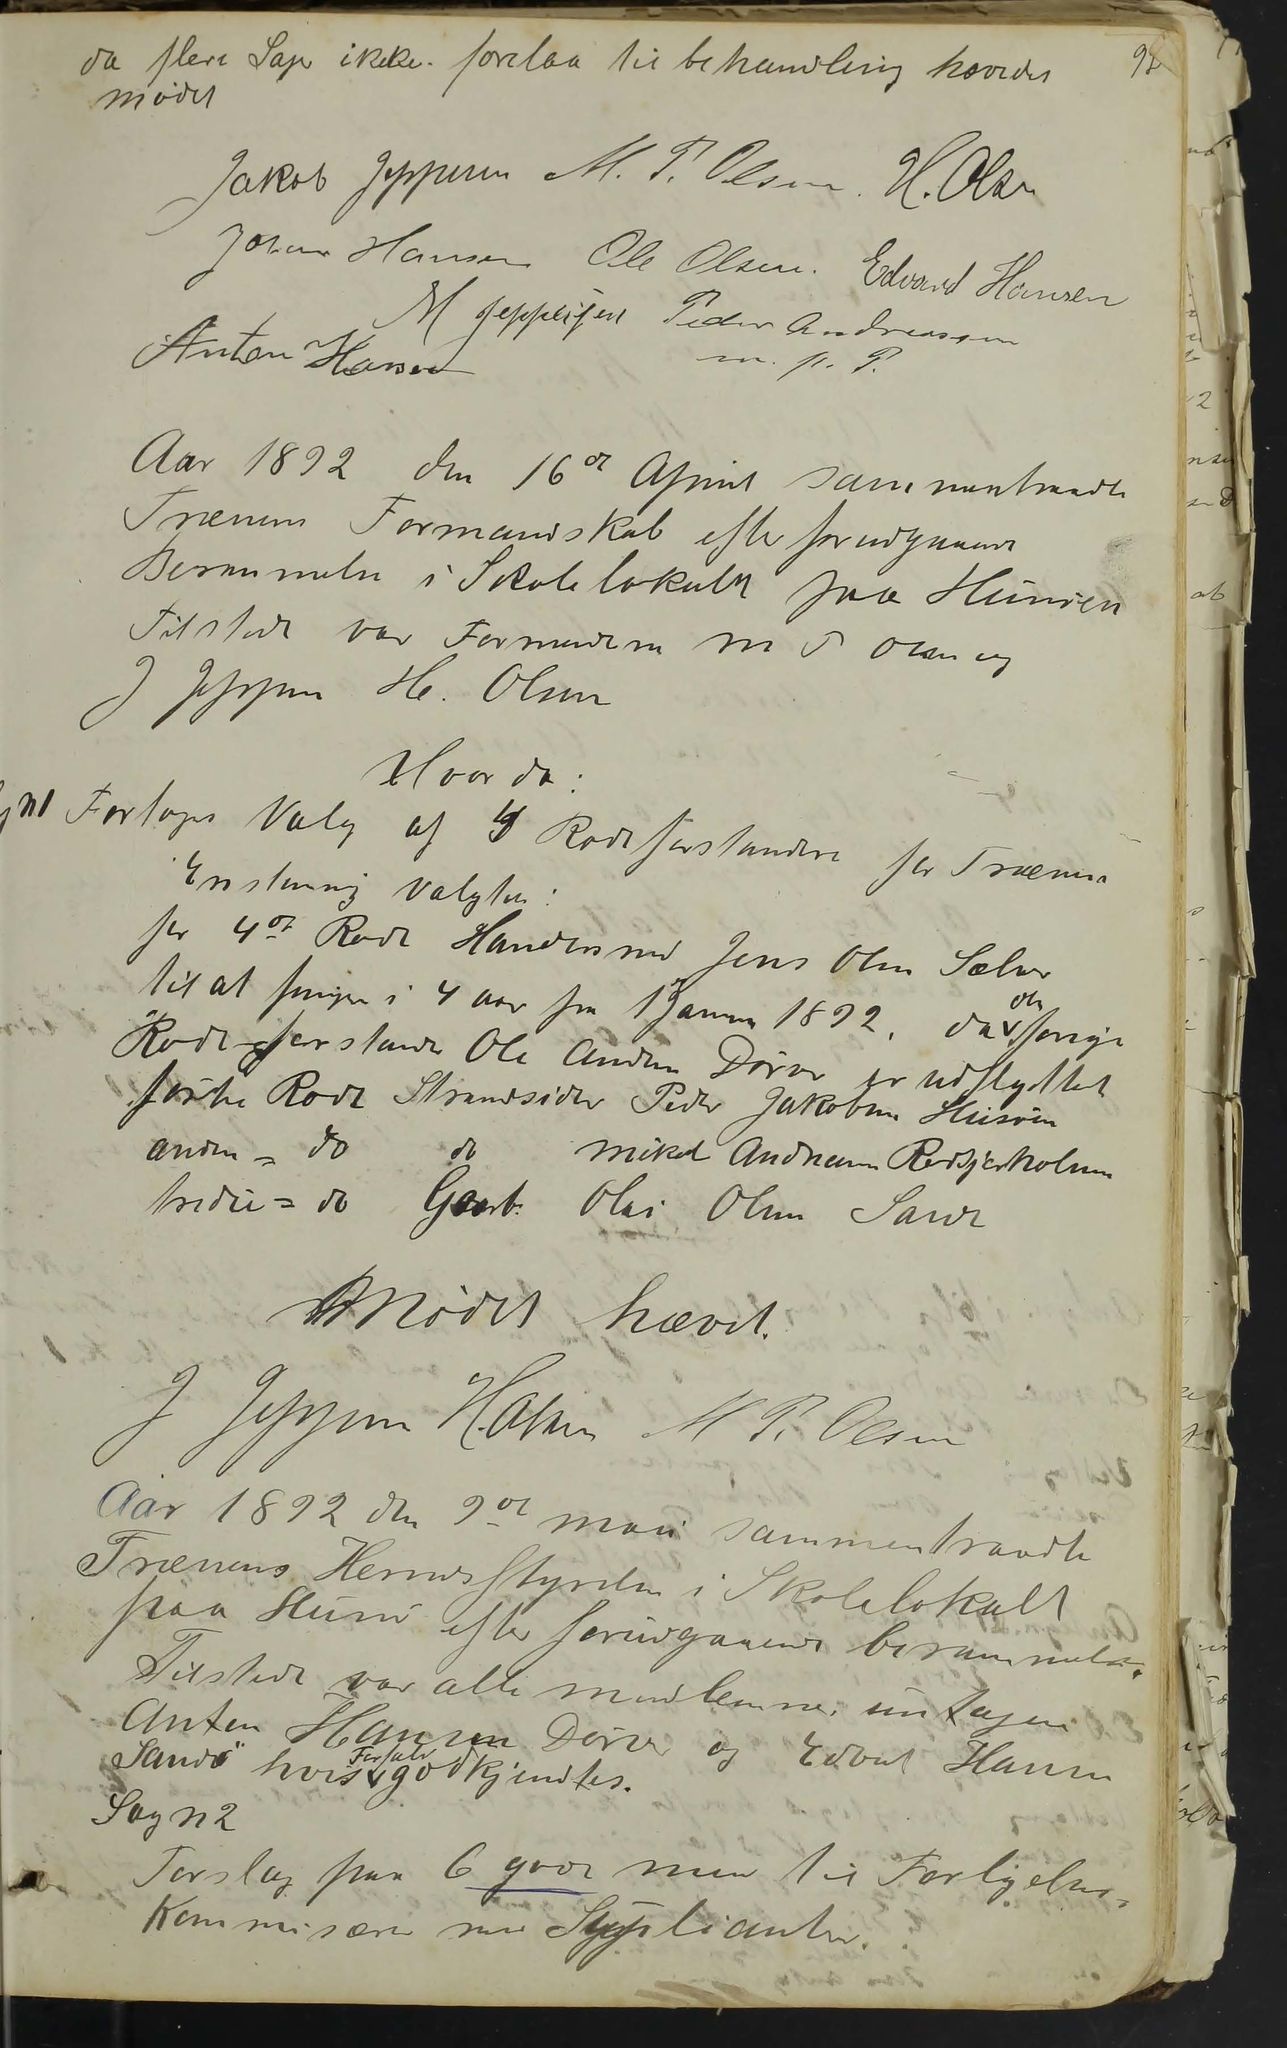 98
da flere Sager ikke forelaa til behandling hævedes
mødet
Jakob Jeppesen M. P. Olsen. H. Olsen
Johan Hansen Ole Olsen. Edvard Hansen
M Jeppesen Peder Andreassen
Anton Hansen m. p. P.
Aar 1892 den 16de April sammentraadte
Trænens Formandskab efter forudgaaende
Berammelse i Skolelokalet paa Husøen
Tilstede var Formændene M P Olsen og
J Jeppesen H. Olsen
Hvor da:
Sag N1 Fortoges Valg af 4 Rodeforstandere for Trænen
Enstemmig valgtes:
for 4de Rode Handelsmd Jens Olsen Sælvær
til at fungere i 4 aar fra 1 Januar 1892. da den forrige
Rodeforstander Ole Andersen Dørvær er udflyttet
første Rode Strandsidder Peder Jakobsen Husøen
anden = do do Mikal Andreasen Rødskjærholmen
tredie = do Gaarb. Olai Olsen Sandø
Mødet hævet.
J Jeppesen H. Olsen M P. Olsen
Aar 1892 den 9de mai sammentraadte
Trænens Herredsstyrelse i Skolelokalet
paa Husø efter forudgaaende berammelse.
Tilstede var alle medlemmer untagen
Anton Hansen Dørvær og Edvart Hansen
Sandø hvis Forfald godkjendtes.
Sag N2
Forslag paa 6 gode mæn til Forligelses-
Kommisærer med Suplianter.